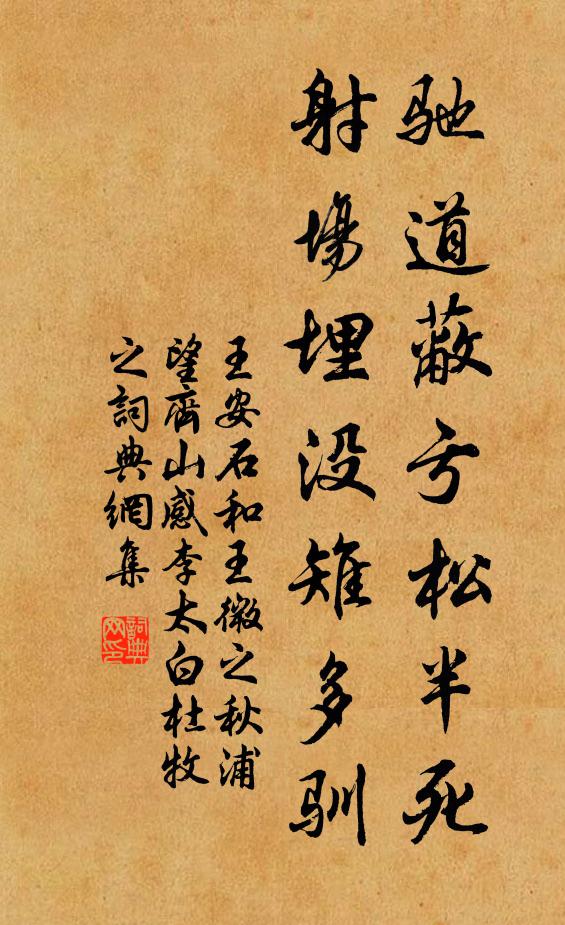 驰道蔽亏松半死
射場埋没雉多驯
王安石和王微之秋浦
望齊山感李太白杜牧
之詞典網集
詞典
网印